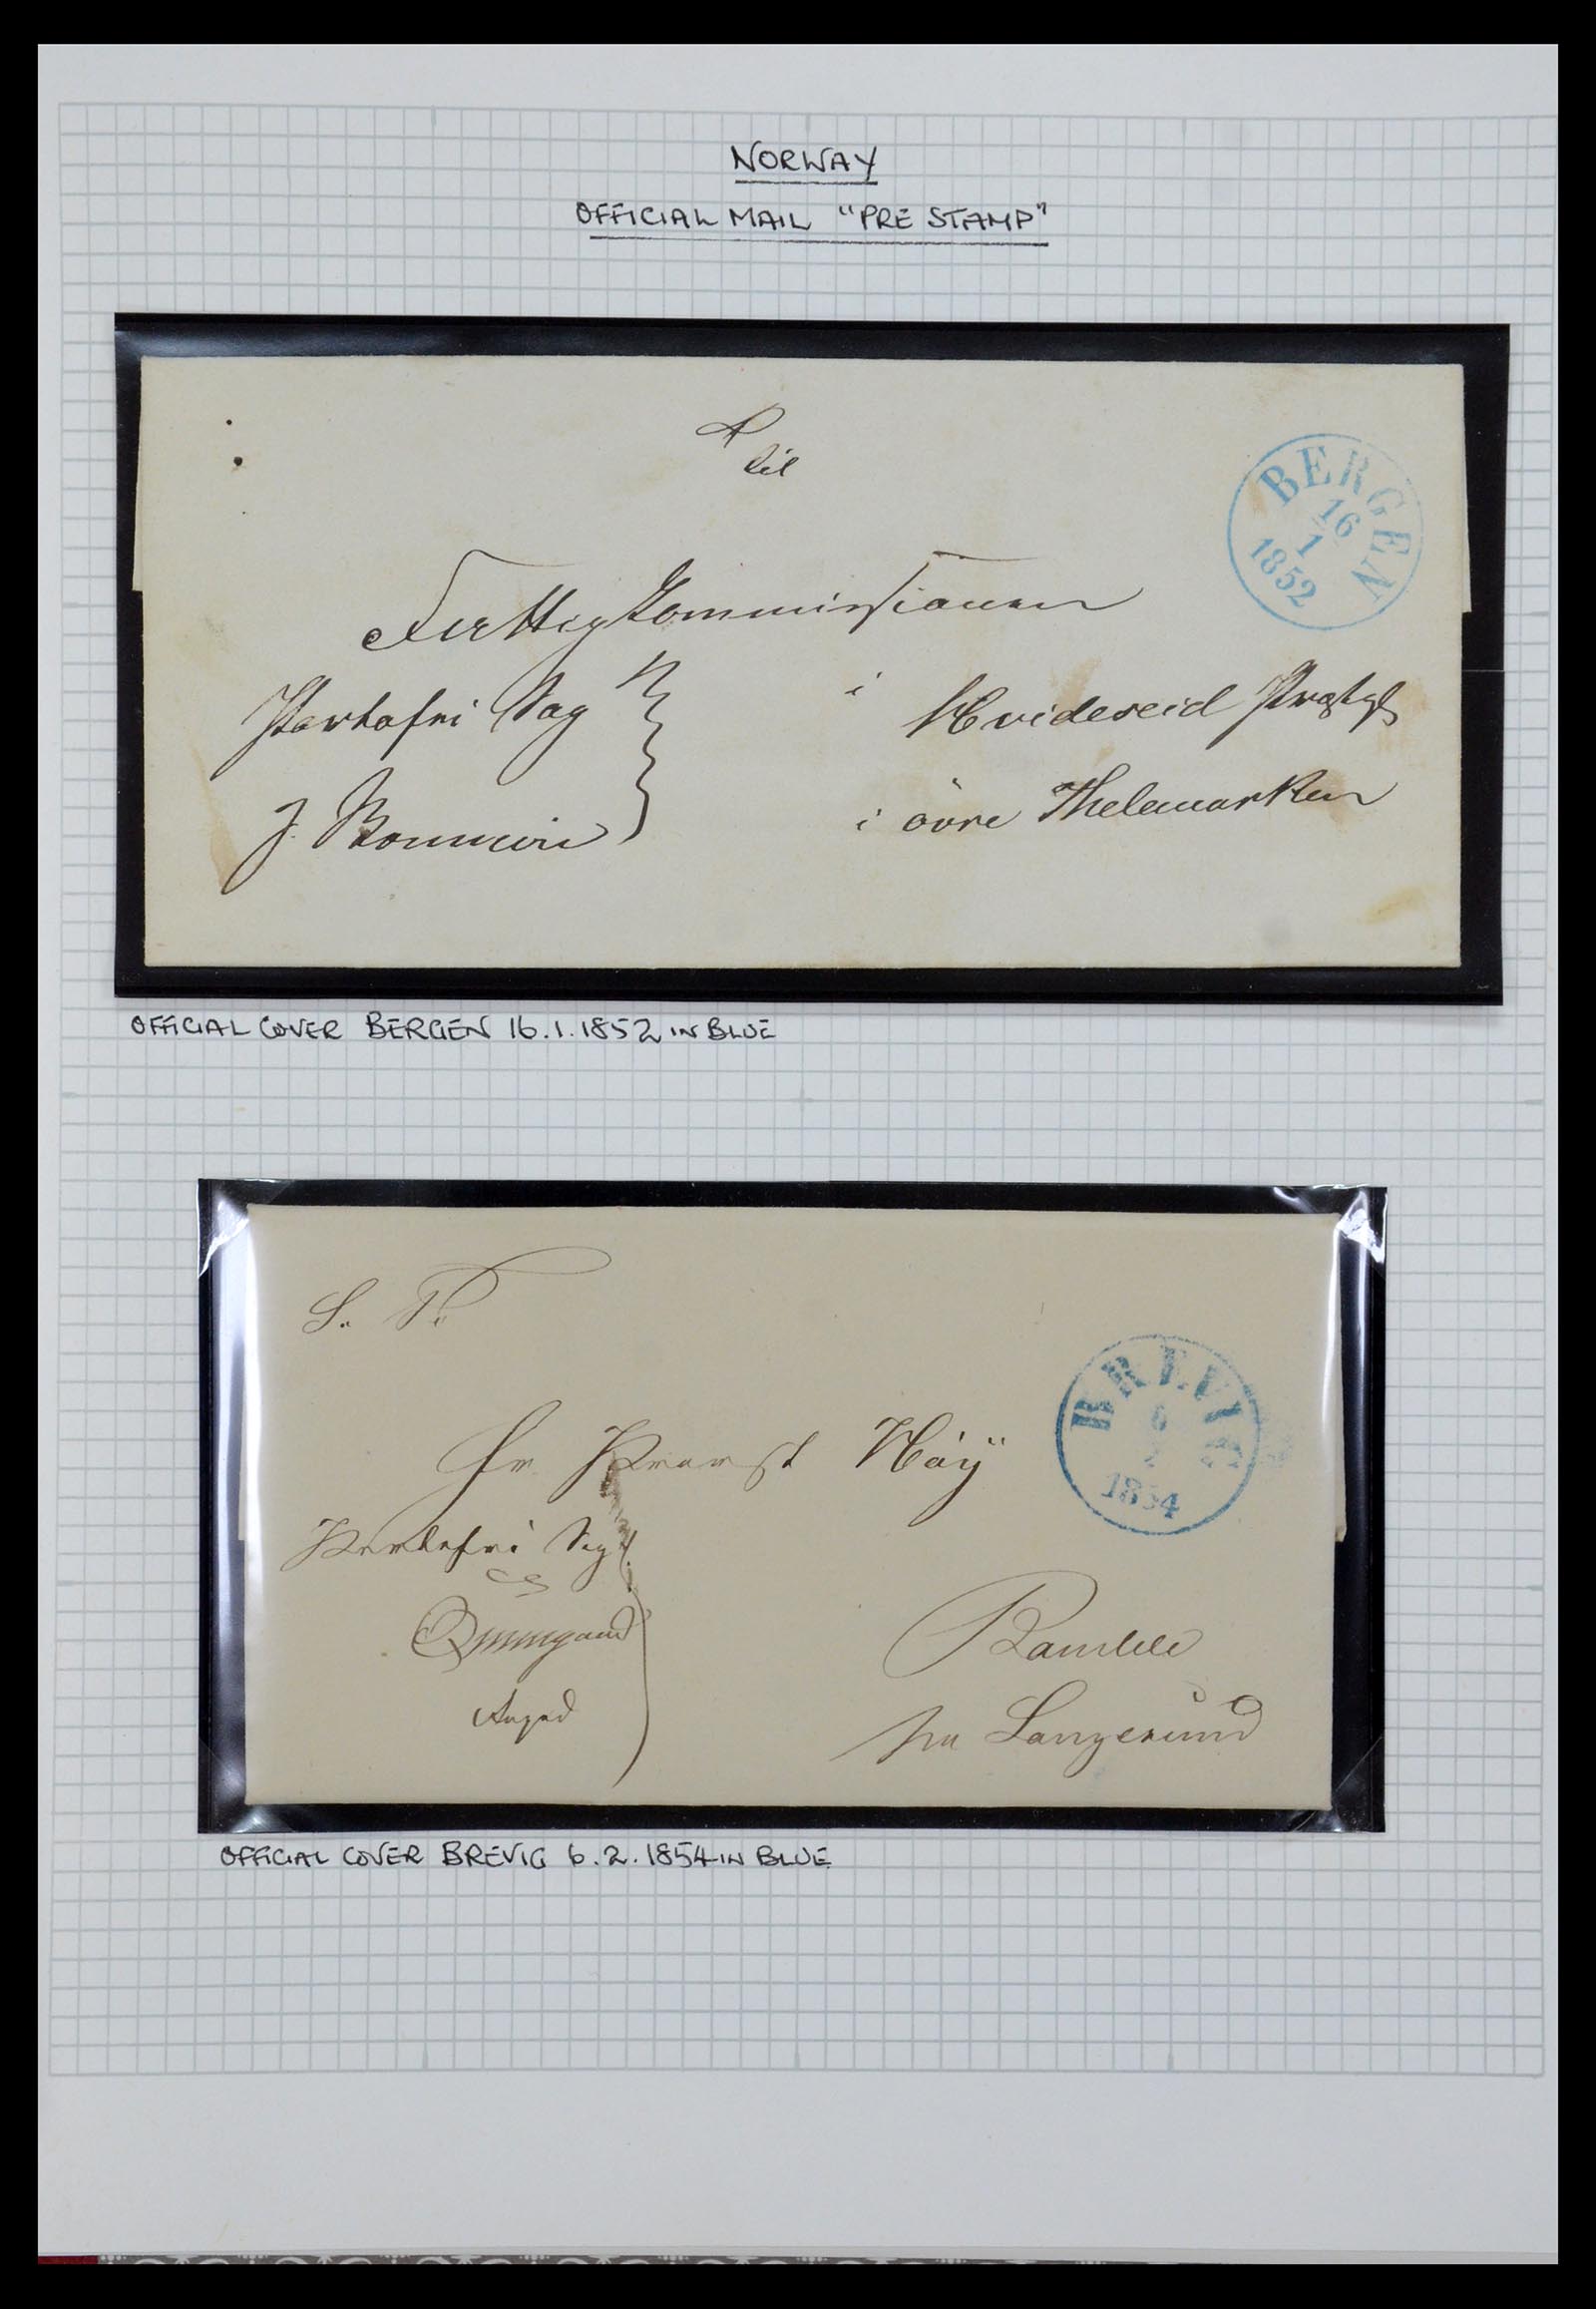 NORWAY
OFFICIAL MAIL "PRE STAMP"
til
BERGEN
16
1
1852
Fattigkommissionen
Portofri Sag
i Hvideseid Præstgj
i övre Thelemarken
OFFICIAL COVER BERGEN 16.1.1852 IN BLUE
S. T.
BREVIG
6
2
1854
Hr Provst Höÿ
Portofri Sag
Bamble
pr Langesund
OFFICIAL COVER BREVIG 6.2.1854 IN BLUE